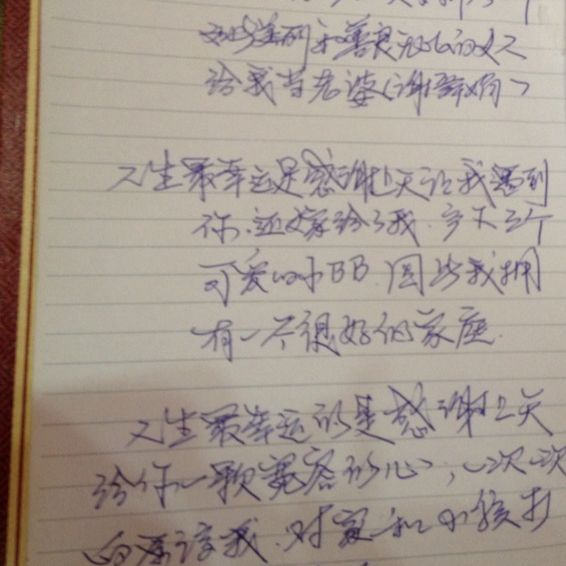 如此美丽和善良无比的女人
给我当老婆(谢
人生最幸运是感谢上天让我遇到
你.还嫁给了我.多了三个
可爱的小BB.因此我拥
有一个很好的家庭.
人生最幸运的是感谢上天
给你一颗宽容的心,一次一次
的原谅我.对家和小孩